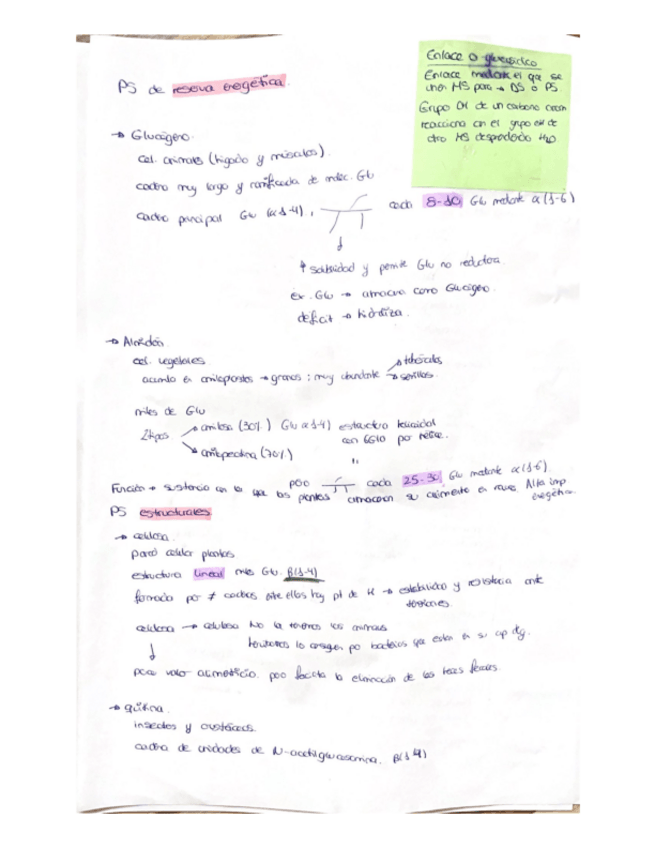 PS de reserva energética.
Enlace O-glucosídico
Enlace mediante el que se
unen MS para → DS o PS.
Grupo OH de un carbono
reacciona con el grupo OH de
otro MS desprendiendo H2O
→ Glucógeno.
Cel. animales (hígado y músculos).
cadena muy larga y ramificada de moléc. Glu
cadena principal Glu (α1-4), cada 8-10 Glu mediante α(1-6)
↓
↑ solubilidad y permite Glu no reductora.
ex. Glu → almacena como Glucógeno.
deficit → hidroliza.
→ Almidón
cel. vegetales
acumula en amiloplastos → granos; muy abundante → tubérculos
→ semillas.
miles de Glu
2 tipos → amilosa (30%) Glu α(1-4) estructura helicoidal
con 6Glu por
→ amilopectina (70%) "
pero cada 25-30 Glu mediante α(1-6)
Función → sustancia con la que las plantas almacenan su alimento en Alta imp
energética.
PS estructurales
→ celulosa.
pared celular plantas
estructura lineal miles Glu. β(1-4)
formada por ≠ cadenas entre ellas hay pt de H → estabilidad y resistencia ante
tensiones.
celulosa → celulasa No la tenemos los animales
herbívoros la consiguen por bacterias que están en su ap dg.
↓
poco valor alimenticio. pero facilita la eliminación de las heces fecales.
→ quitina.
insectos y crustáceos.
cadena de unidades de N-acetilglucosamina. β(1-4)